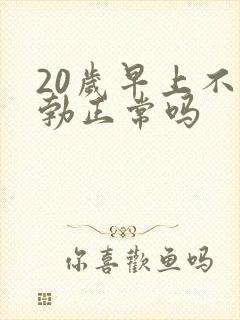 20歲早上不
勃正常吗
你喜歡鱼吗